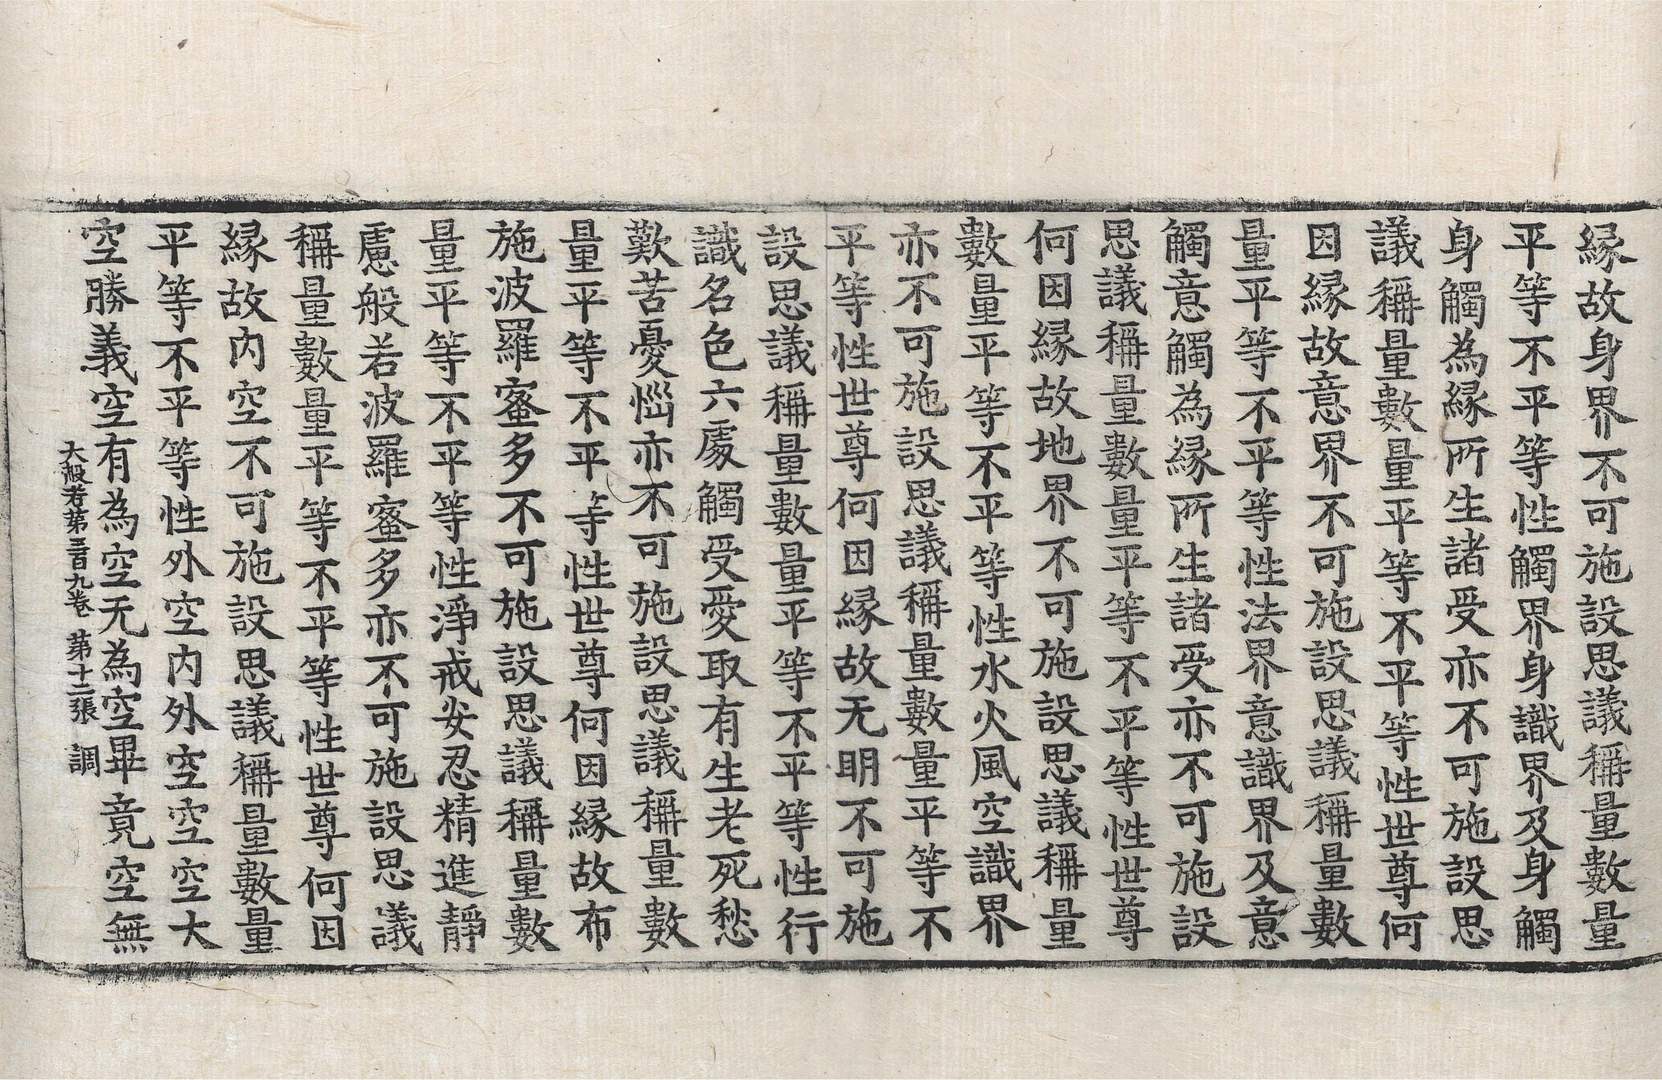 縁故身界不可施設思議稱量數量
平等不平等性觸界身識界及身觸
身觸為縁所生諸受亦不可施設思
議稱量數量平等不平等性世尊何
因縁故意界不可施設思議稱量數
量平等不平等性法界意識界及意
觸意觸為縁所生諸受亦不可施設
思議稱量數量平等不平等性世尊
何因縁故地界不可施設思議稱量
數量平等不平等性水火風空識界
亦不可施設思議稱量數量平等不
平等性世尊何因縁故无明不可施
設思議稱量數量平等不平等性行
識名色六處觸受愛取有生老死愁
歎苦憂惱亦不可施設思議稱量數
量平等不平等性世尊何因縁故布
施波羅蜜多不可施設思議稱量數
量平等不平等性淨戒安忍精進靜
慮般若波羅蜜多亦不可施設思議
稱量數量平等不平等性世尊何因
縁故内空不可施設思議稱量數量
平等不平等性外空内外空空空大
空勝義空有為空无為空畢竟空無
大般若第三百九卷 第十二張 調